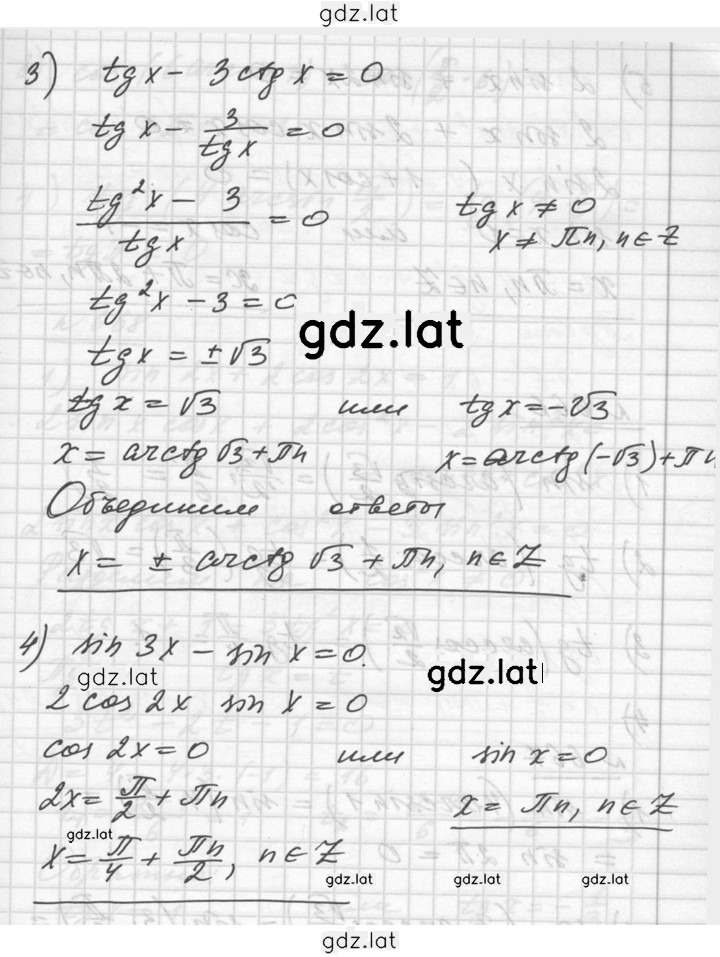 gdz.lat
3) tg x - 3 ctg x = 0
tg x - 3/tg x = 0
(tg²x - 3)/tg x = 0 tg x ≠ 0
x ≠ πn, n ∈ Z
tg²x - 3 = 0
gdz.lat
tg x = ± √3
tg x = √3 или tg x = -√3
x = arctg √3 + πn x = arctg (-√3) + πn
Объединим ответы
x = ± arctg √3 + πn, n ∈ Z
4) sin 3x - sin x = 0.
gdz.lat
2 cos 2x sin x = 0
cos 2x = 0 или sin x = 0
2x = π/2 + πn x = πn, n ∈ Z
gdz.lat
x = π/4 + πn/2, n ∈ Z
gdz.lat gdz.lat gdz.lat
gdz.lat